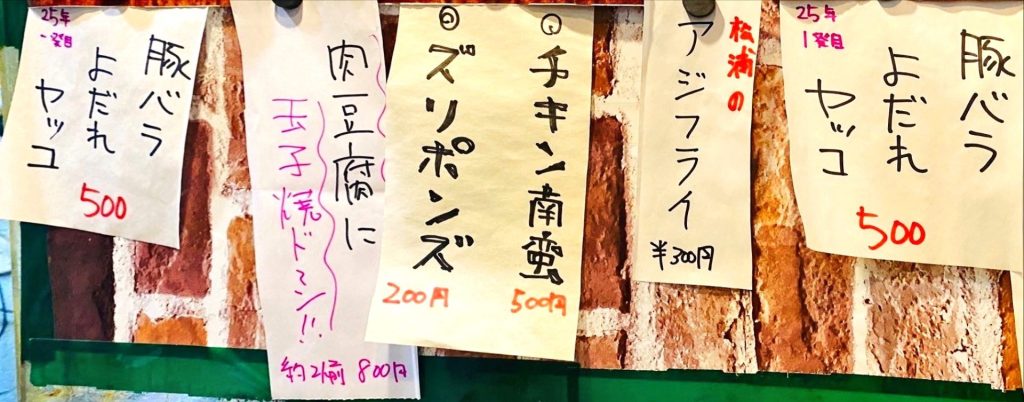 豚バラ
よだれ
ヤッコ
25年
1発目
500
松浦の
アジフライ
半300円
チキン南蛮
500円
ズリポンズ
200円
肉豆腐に
玉子焼ドーン!!
約2人前 800円
豚バラ
よだれ
ヤッコ
25年
一発目
500